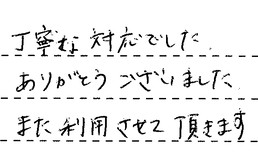 丁寧な対応でした
ありがとうございました
また利用させて頂きます